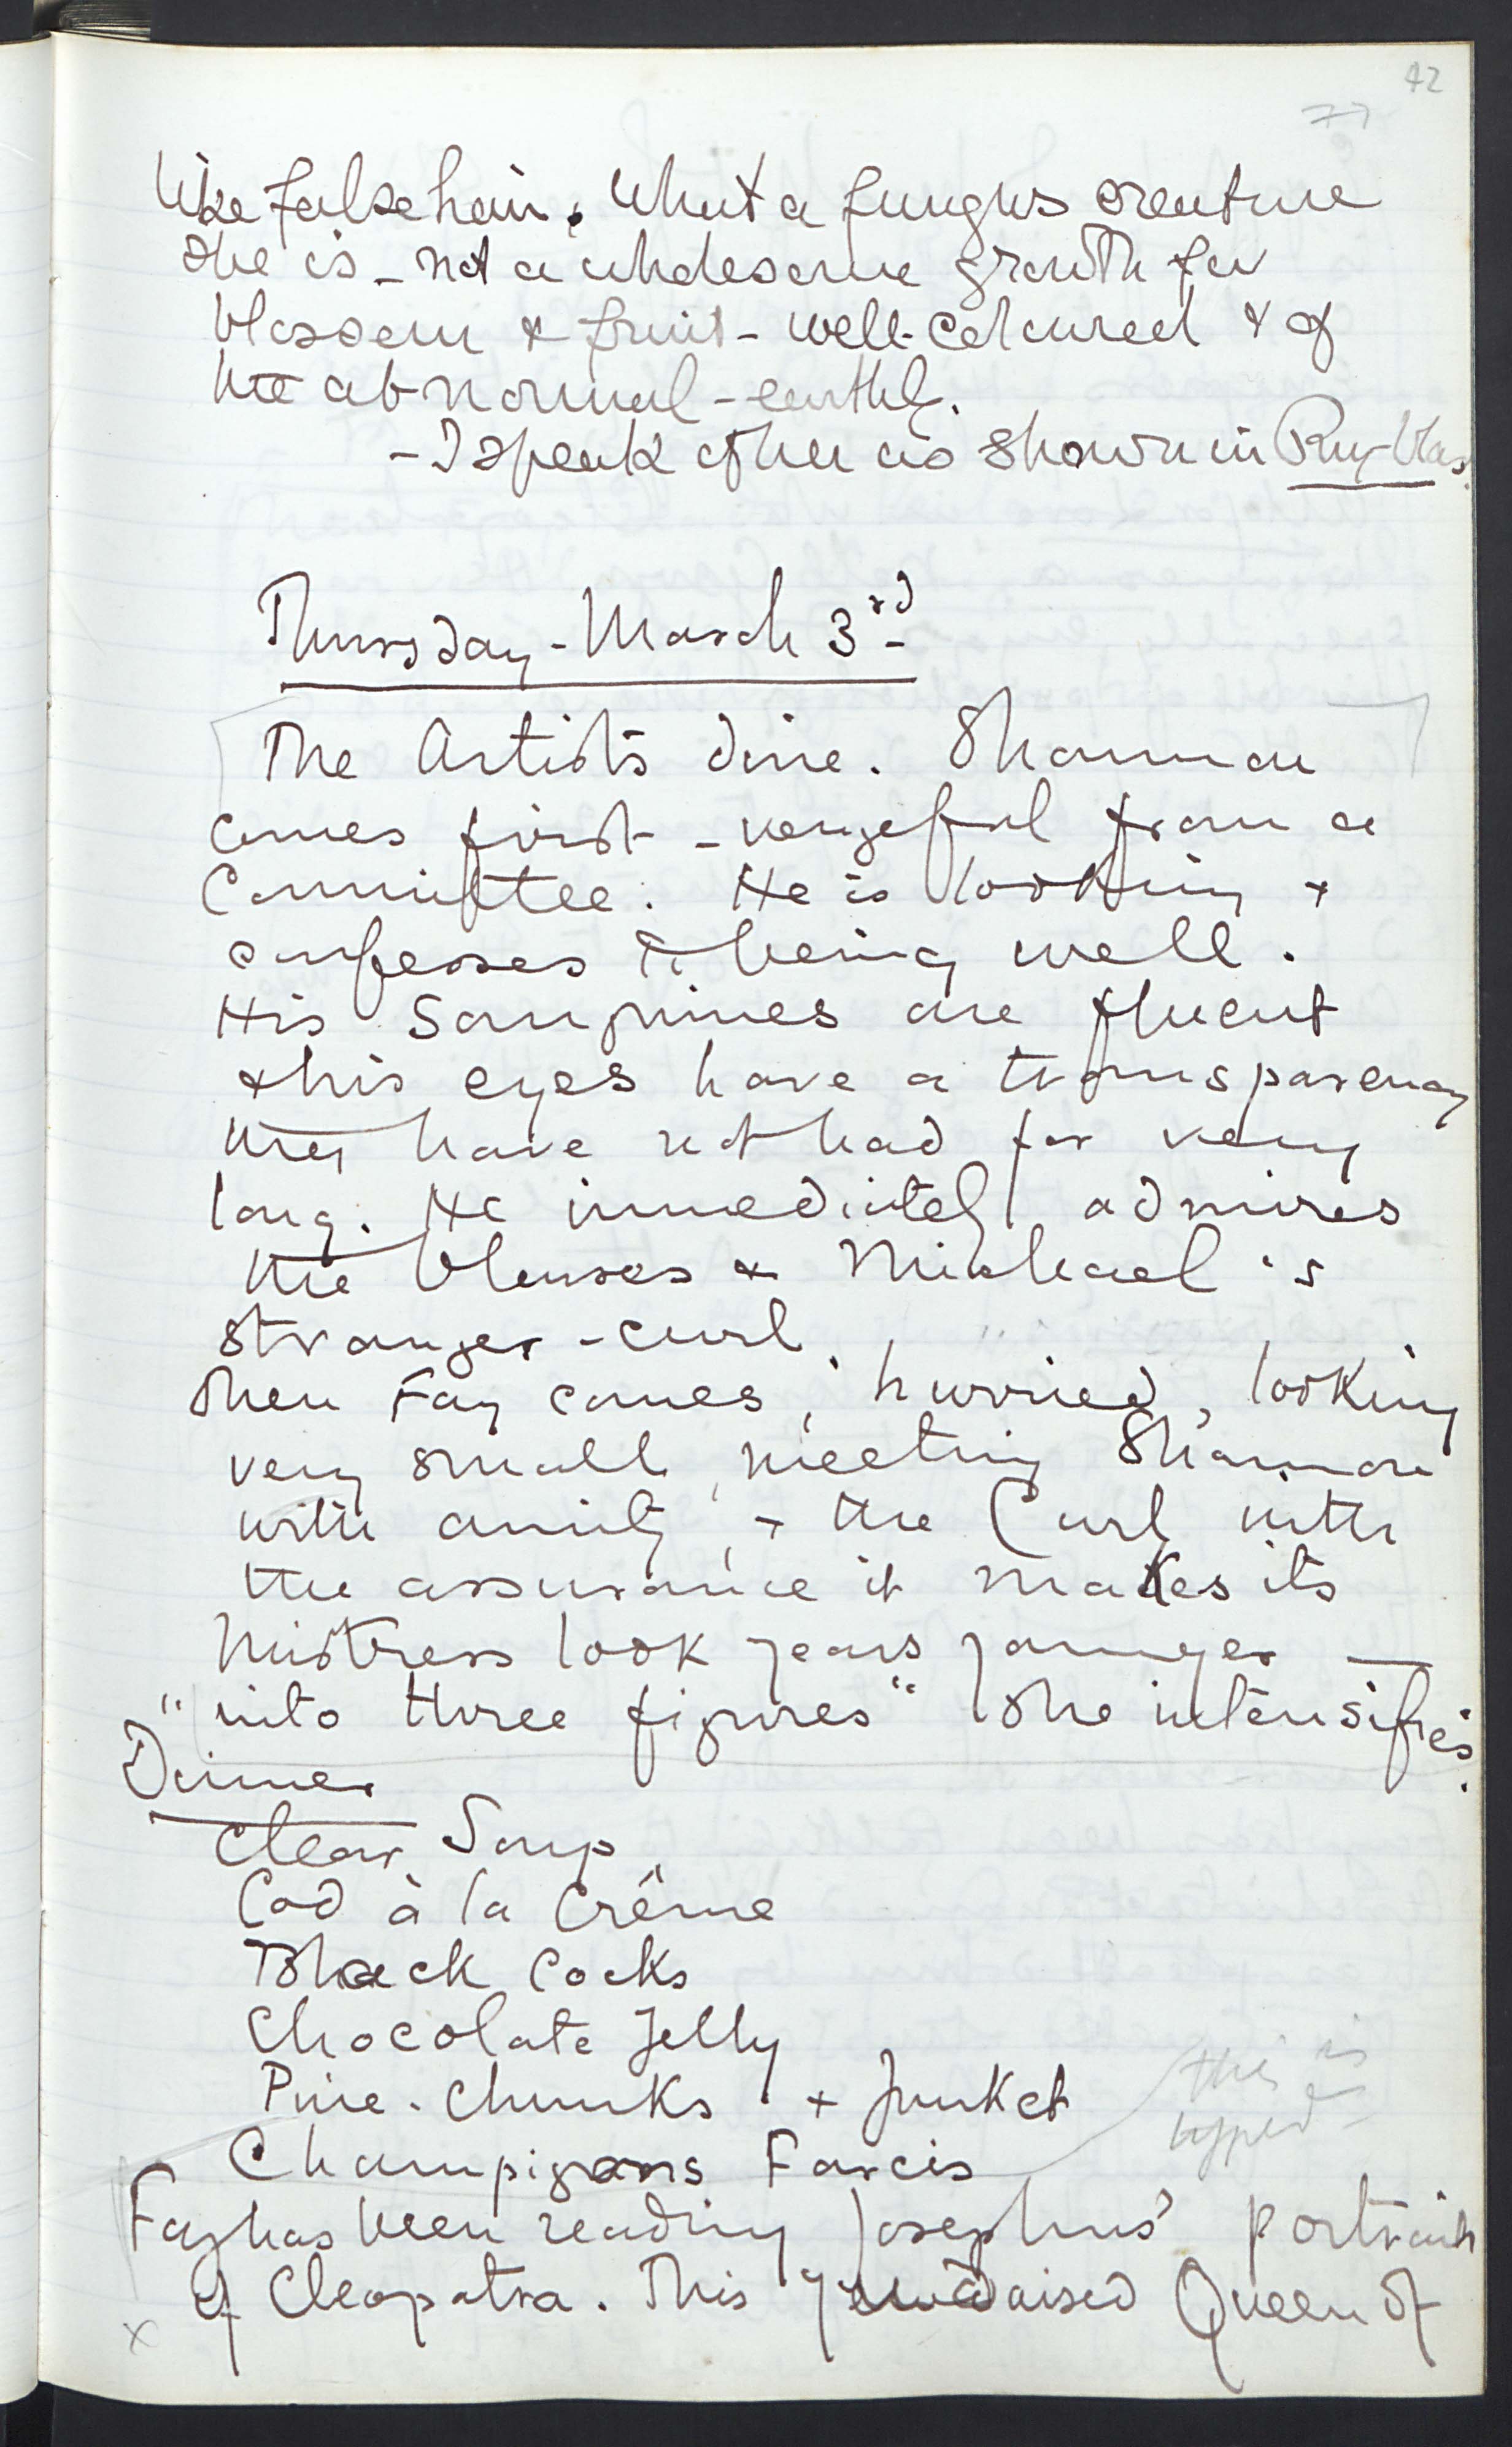 42
77
like false hair. What a fungus creature
she is – not a wholesome growth for
blossom & fruit – well-coloured & of
the abnormal – earthly.
– I speak of her as shown in Ruy-Blas.
Thursday – March 3rd –
The Artists dine. Shannon
comes first – vengeful from a
Committee. He is looking +
confesses to being well.
His are fluent
& his eyes have a transparency
they have not had for very
long. He immediately admires
the blouses & Michael's
stranger-curl.
Then Fay comes, hurried, looking
very small, meeting Shannon
with amity, + the Curl with
the assurance it makes its
mistress look years younger —
"into three figures" she intensifies.
Dinner
Clear Soup
Cod à la Crême
Black Cocks
Chocolate Jelly
Pine-Chunks + Junket
Champignons Farcis
this is
typed
Fay has been reading Josephus' portrait
of Cleopatra. This Queen of
x